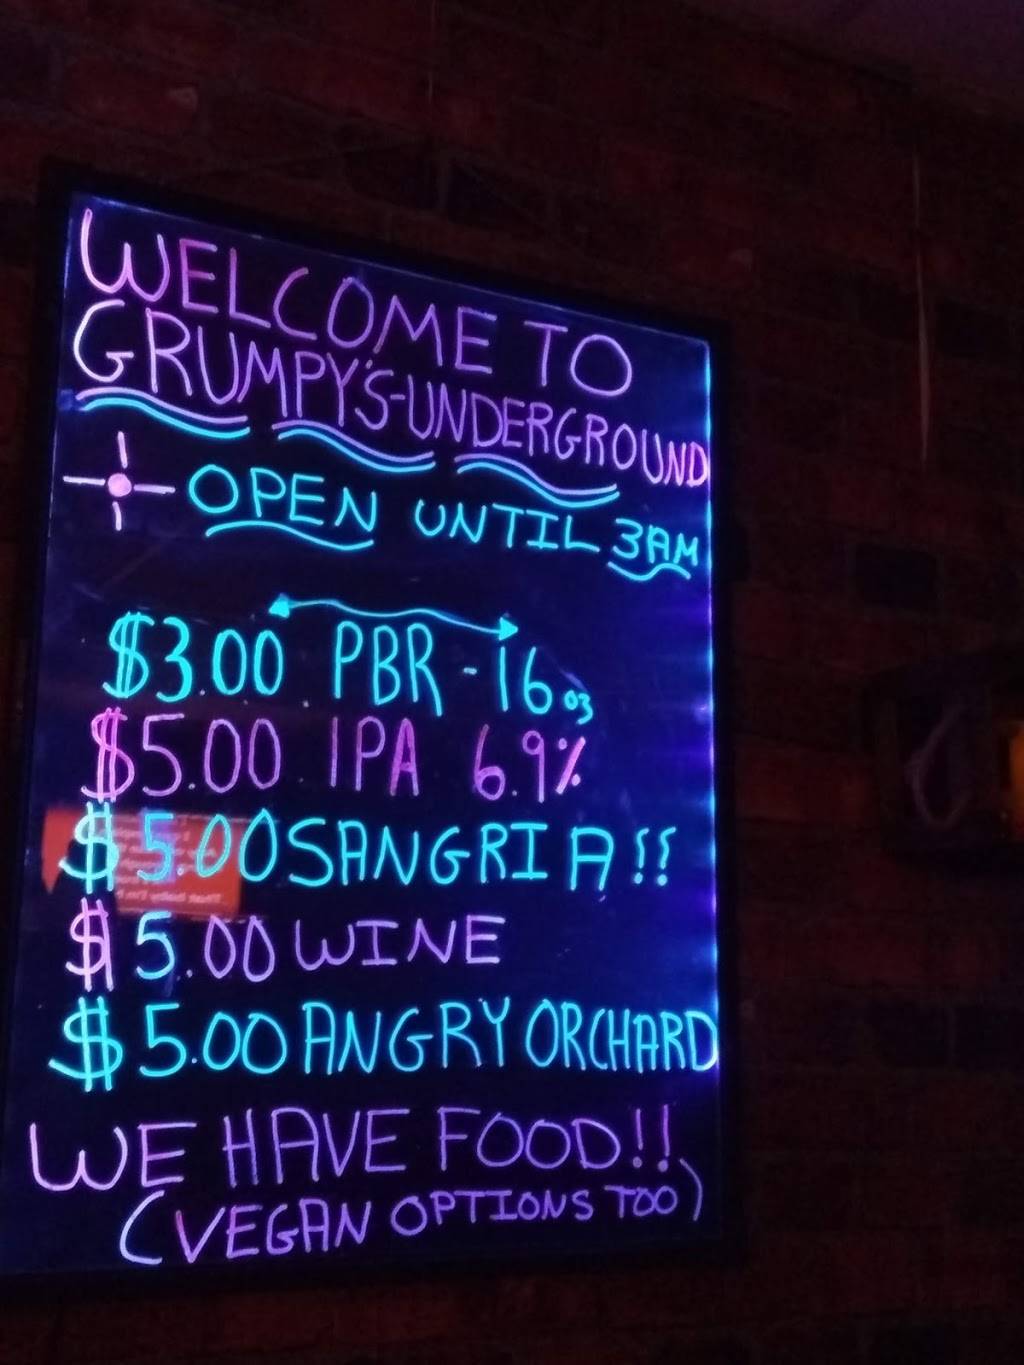 WELCOME TO
GRUMPY'S-UNDERGROUND
OPEN UNTIL 3AM
$3.00 PBR - 16oz
$5.00 IPA 6.9%
$5.00 SANGRIA!!
$5.00 WINE
$5.00 ANGRY ORCHARD
WE HAVE FOOD!!
(VEGAN OPTIONS TOO)